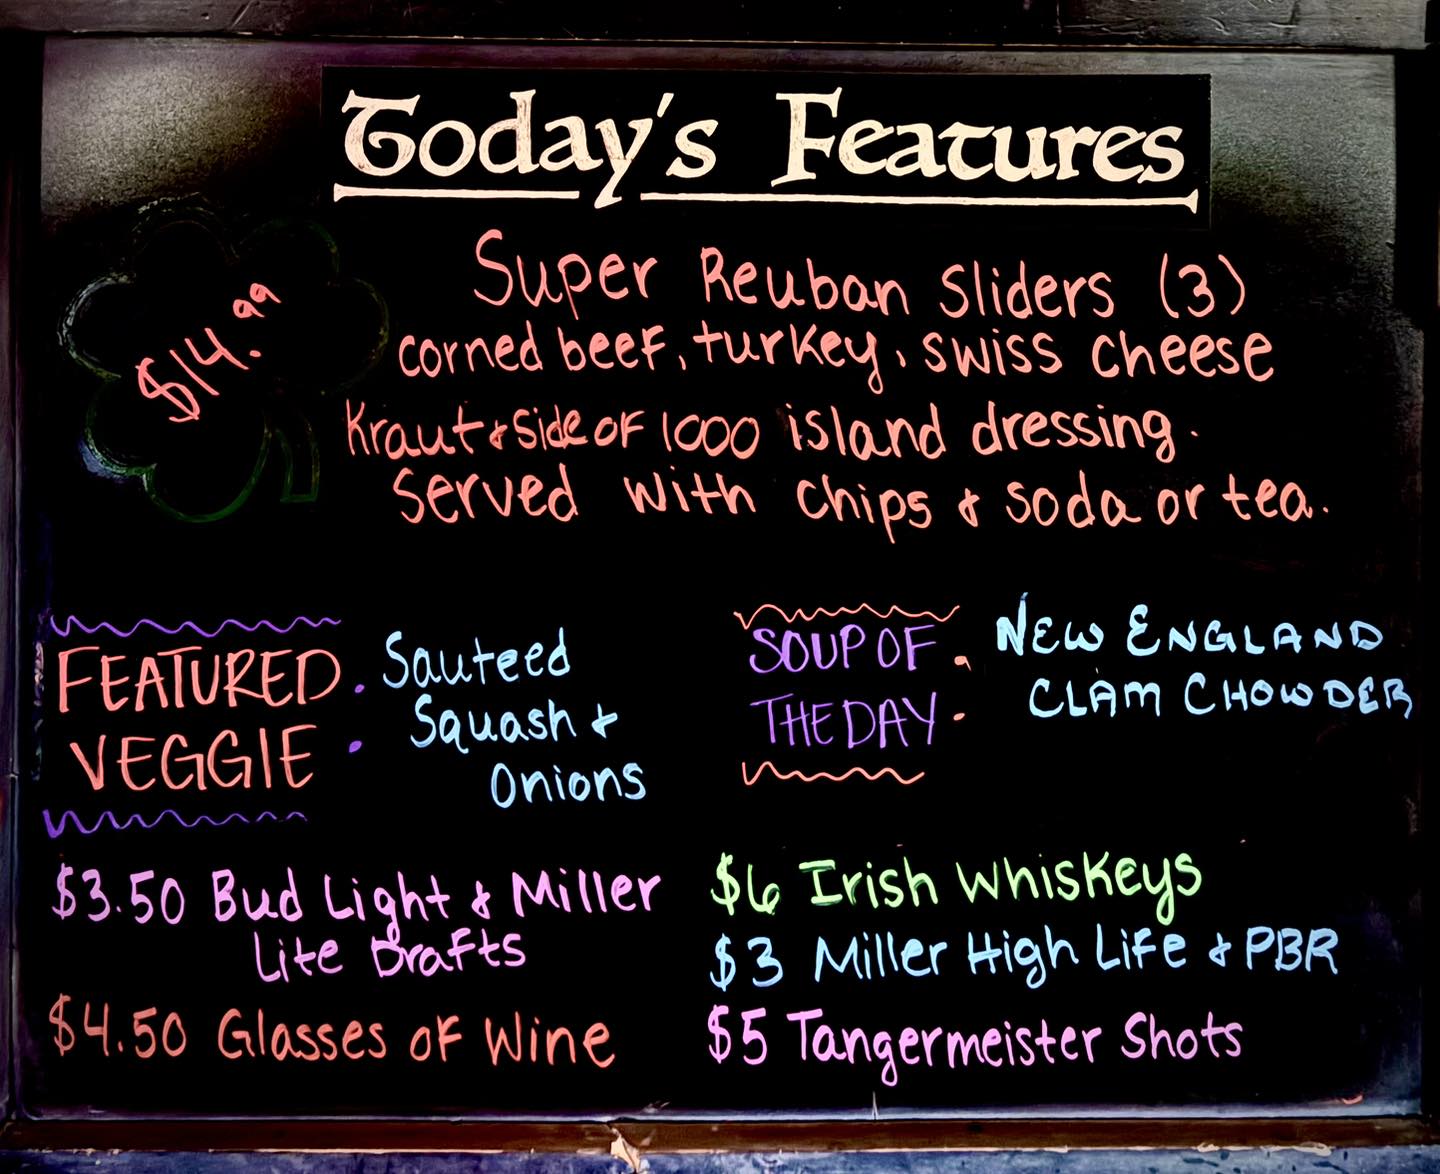 Today's Features
$14.99
Super Reuban Sliders (3)
corned beef, turkey, swiss cheese
Kraut & side of 1000 island dressing.
Served with chips & soda or tea.
FEATURED
VEGGIE
: Sauteed
Squash &
Onions
SOUP OF
THE DAY
: NEW ENGLAND
CLAM CHOWDER
$3.50 Bud Light & Miller
Lite Drafts
$4.50 Glasses of Wine
$6 Irish Whiskeys
$3 Miller High Life & PBR
$5 Tangermeister Shots